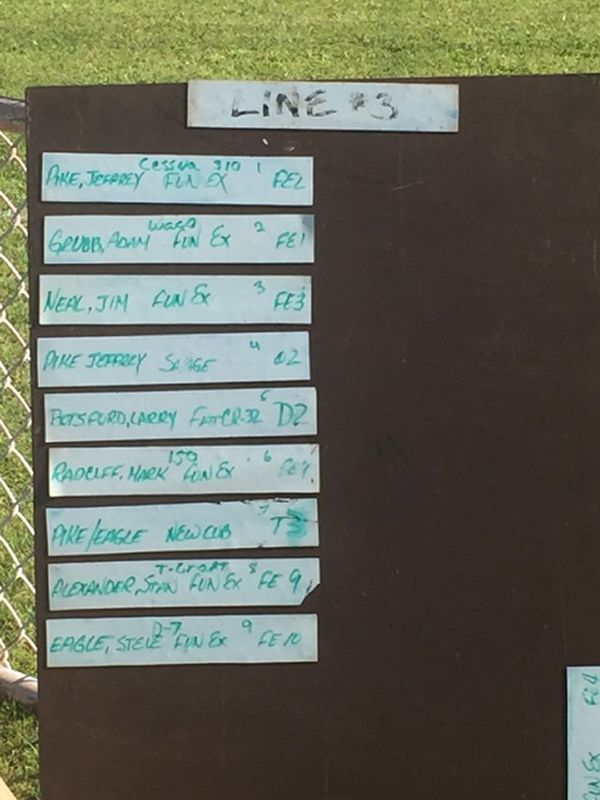 LINE #3
Cessna 310 1
PIKE, JEFFREY FUN EX FE2
Waco 2
GRUBB, ADAM FUN EX FE1
NEAL, JIM FUN EX 3 FE3
PIKE JEFFREY SAVAGE 4 D2
BOTSFORD, LARRY FIAT CR-32 D2
150 6
RADCLFF, MARK FUN EX
PIKE/EAGLE NEW CUB 7 T3
T-Craft 8
ALEXANDER, STAN FUN EX FE 9
9
EAGLE, STEVE FUN EX FE 10
FUN EX